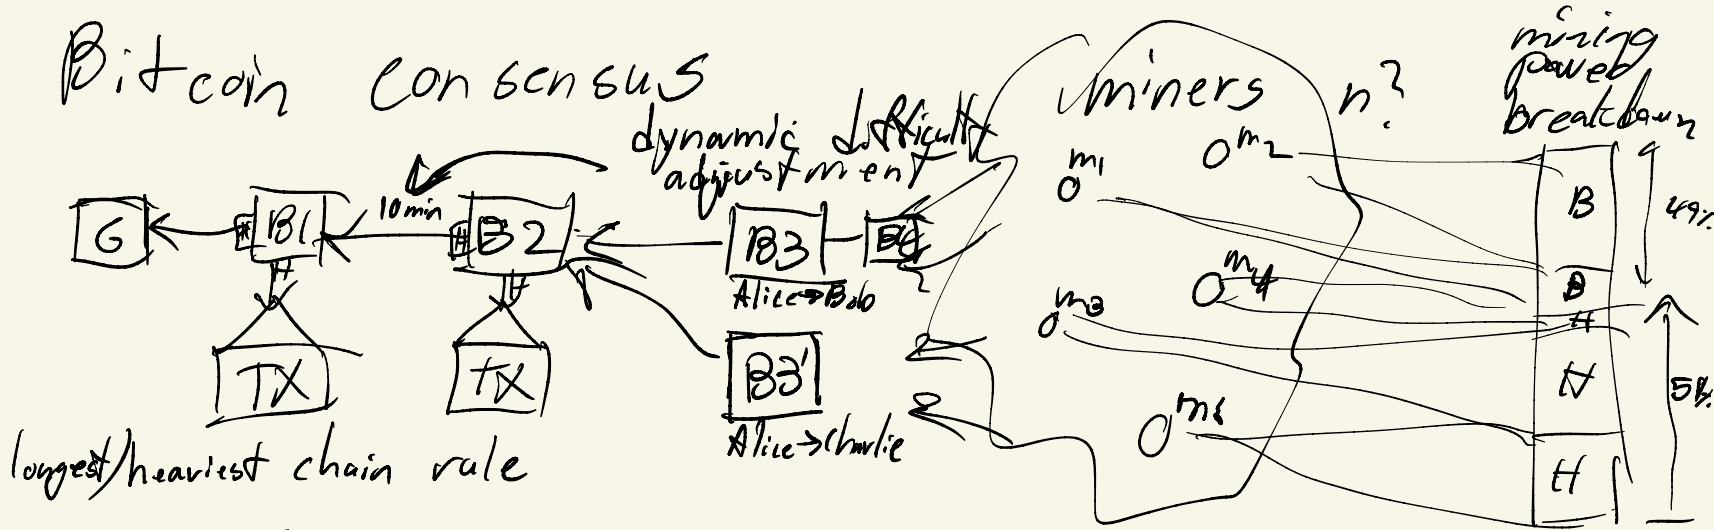 Bitcoin consensus
dynamic difficulty
adjustment
10 min
G
# B1
# B2
B3
B4
Alice→Bob
H
H
TX
TX
B3'
Alice→Charlie
longest/heaviest chain rule
miners n?
m1
m2
m3
m4
mining
power
breakdown
B
B
H
H
H
49%
51%